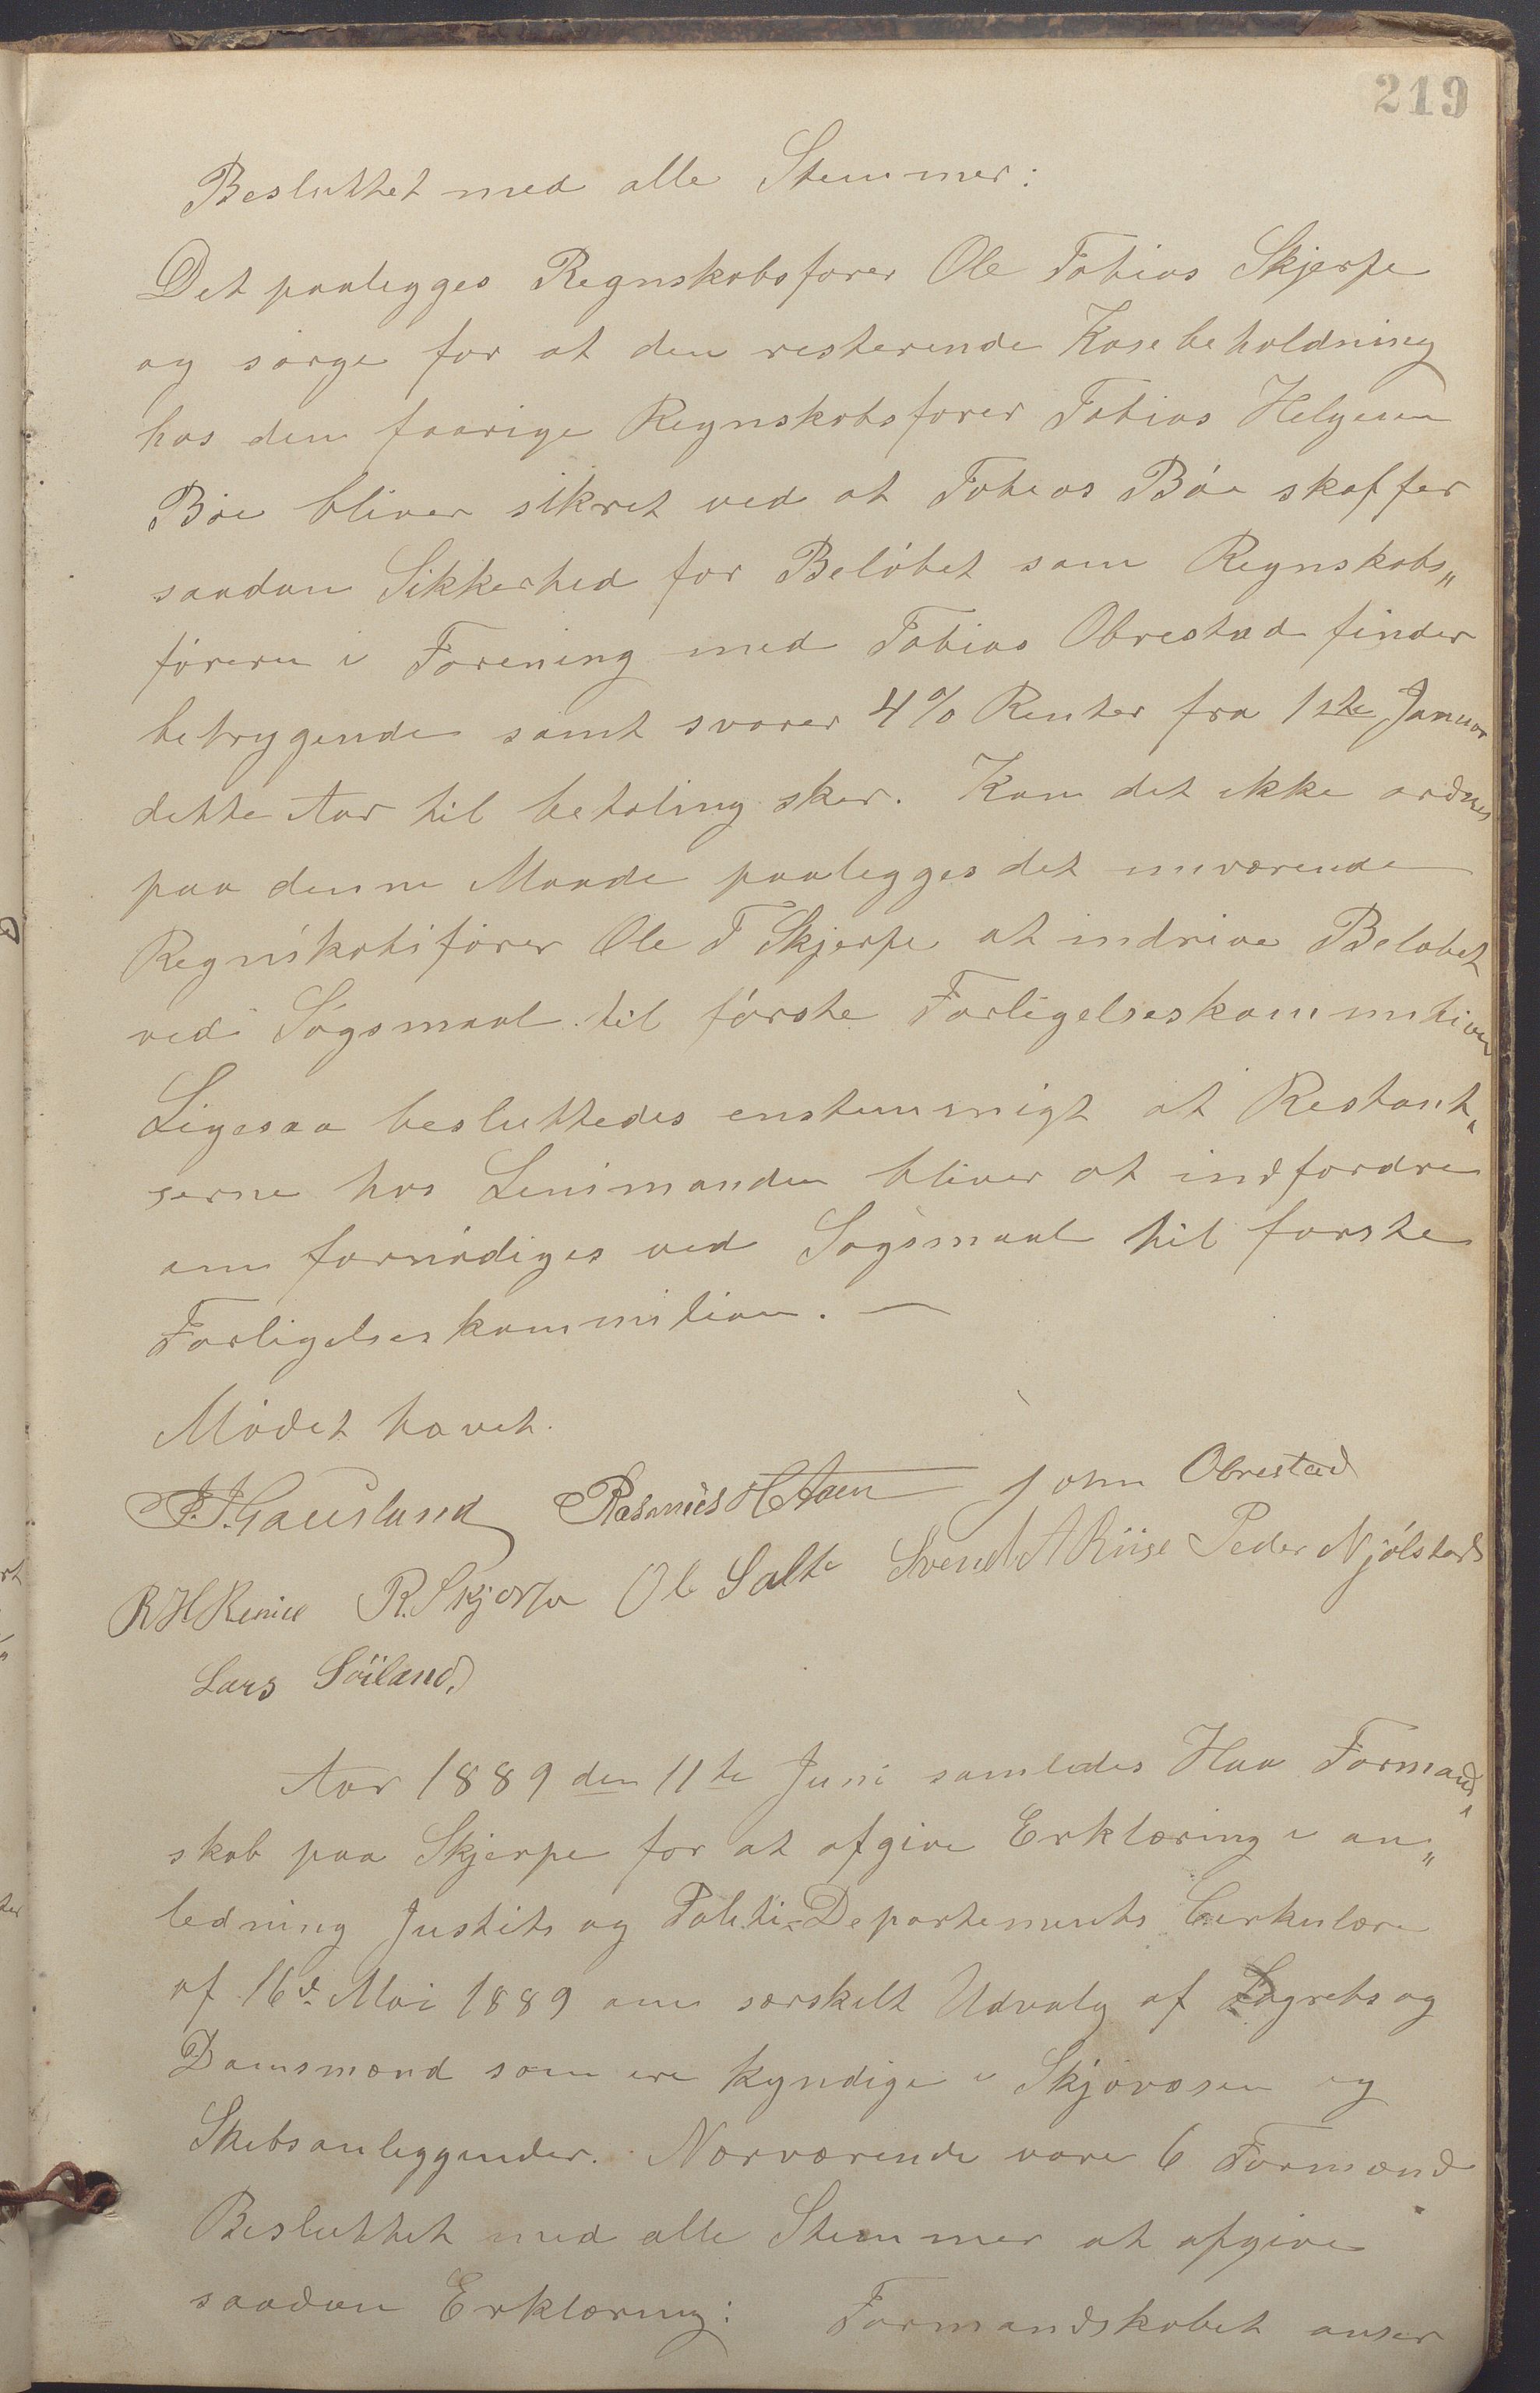 219
Besluttet med alle Stemmer:
Det paalegges Regnskabsfører Ole Tobias Skjerpe
og sørge for at den resterende Kasebeholdning
hos den faarige Regnskabsfører Tobias Helgesen
Bøe bliver sikret ved at Tobias Bøe skaffer
saadan Sikkerhed for Beløbet som Regnskabs„
føreren i Forening med Tobias Obrestad finder
betrygende samt svarer 4% Renter fra 1ste Januar
dette Aar til betaling sker. Kan det ikke ordnes
paa denne Maade paalegges det nuværende
Regnskabsfører Ole T Skjerpe at indrive Beløbet
ved Søgsmaal til første Forligelseskommition
Ligesaa besluttedes enstemmigt at Restant„
serne hos Lensmanden bliver at indfordre
om fornødiges ved Søgsmaal til første
Forligelseskommition. —
Mødet hævet.
J. J. Gauslund Rasmus H Aaen John Obrestad
R H Reime R. Skjerpe Ole Salte Svend A Riise Peder Njølstad
Lars Söiland,
Aar 1889 den 11te Juni samledes Haa Formand„
skab paa Skjerpe for at afgive Erklæring i an„
ledning Justits og Politi-Departements Cirkulære
af 16de Mai 1889 om særskilt Udvalg af Lagrets og
Domsmænd som ere kyndige i Skjøvæsen og
Skibsanleggender. Nærværende vare 6 Formænd
Besluttet med alle Stemmer at afgive
saadan Erklæring: Formandskabet anser